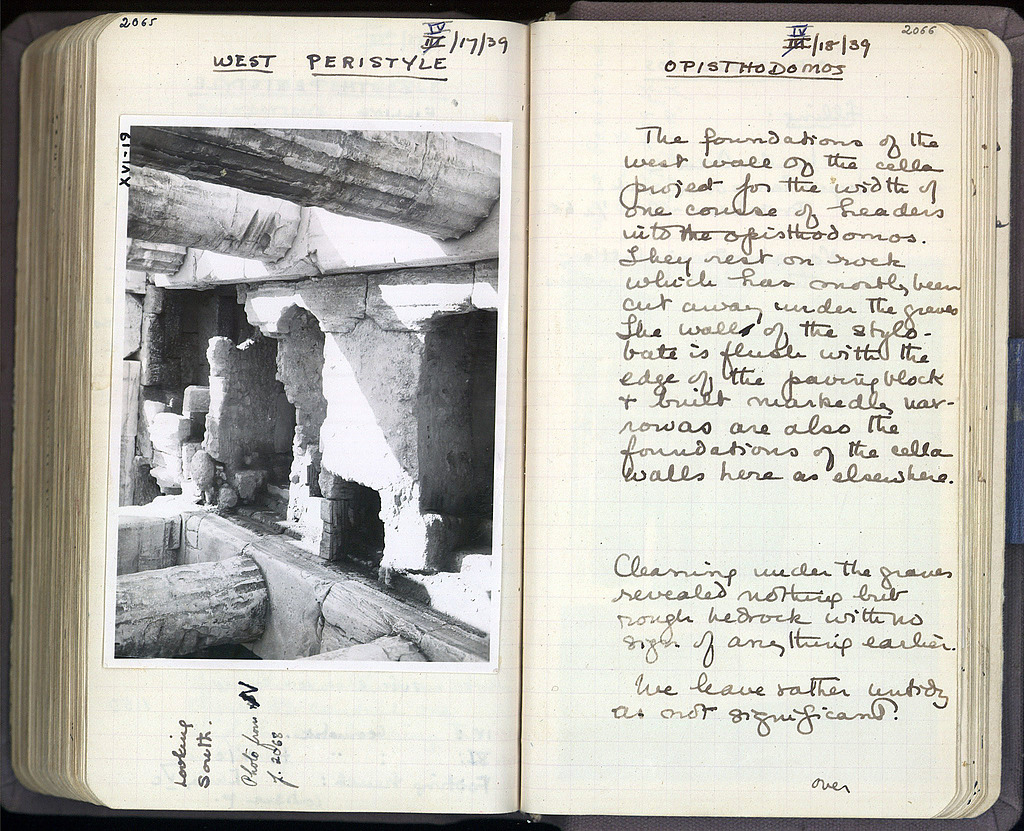 2065
IV
III/17/39
WEST PERISTYLE
XVI-19
Looking
South.
Photo from N
f. 2068
2066
IV
III/18/39
OPISTHODOMOS
The foundations of the
west wall of the cella
project for the width of
one course of headers
into the opisthodomos.
They rest on rock
which has mostly been
cut away under the graves
The walls of the stylo-
bate is flush with the
edge of the paving block
+ built markedly nar-
row as are also the
foundations of the cella
walls here as elsewhere.
Cleaning under the graves
revealed nothing but
rough bedrock with no
sign of anything earlier.
We leave rather untidy
as not significant.
over